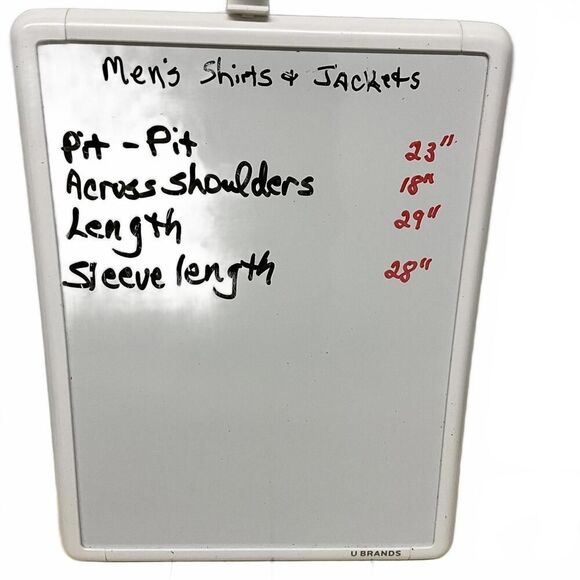 Men's Shirts & Jackets
Pit - Pit 23"
Across Shoulders 18"
Length 29"
Sleeve length 28"
U BRANDS